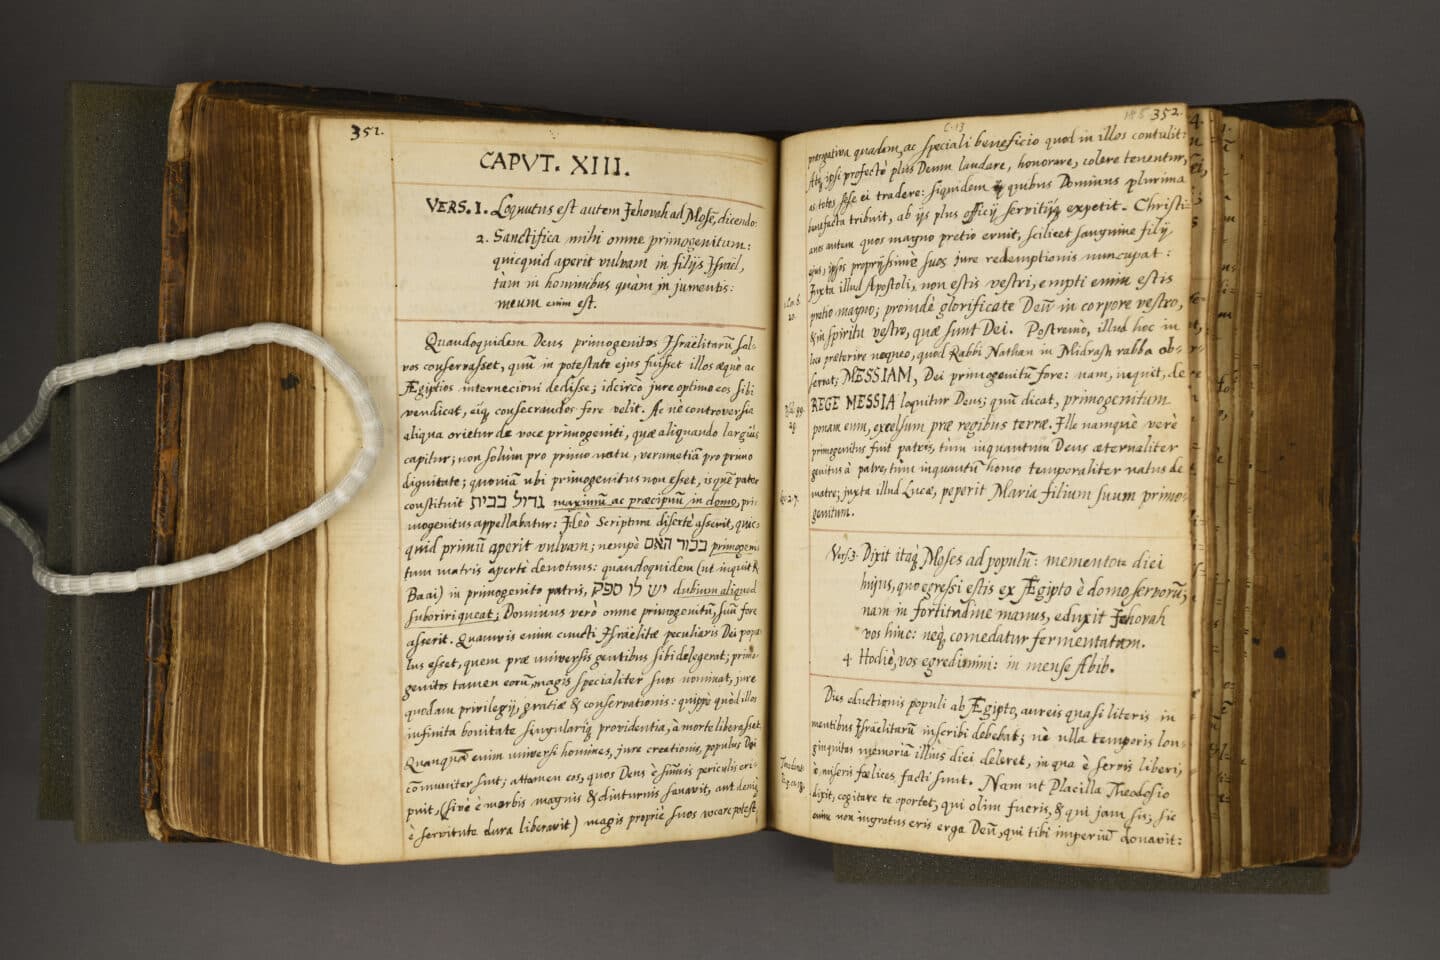 351.
CAPVT. XIII.
VERS. I. Loquutus est autem Jehovah ad Mosẽ, dicendo:
2. Sanctifica mihi omne primogenitum:
quicquid aperit vulvam in filijs Jsraël,
tàm in hominibus quàm in jumentis:
meum enim est.
Quandoquidem Deus primogenitos Jsraëlitarũ sal-
vos conservasset, quũ in potestate ejus fuisset illos æquè ac
Ægiptios internecioni dedisse; idcircò jure optimo eos sibi
vendicat, eiq̃ consecrandos fore velit. Ac nè controversia
aliqua orietur de voce primogeniti, quæ aliquando largiùs
capitur; non solùm pro primo natu, verumetiã pro primo
dignitate; quoniã ubi primogenitus non esset, is quẽ pater
constituit גדול בבית maximũ ac præcipuũ in domo, pri-
mogenitus appellabatur: Jdeò Scriptura disertè asserit, quic-
quid primũ aperit vulvam; nempè בכור האם primogeni-
tum matris apertè denotans: quandoquidem (ut inquit R.
Baai) in primogenito patris, יש לו ספק dubium aliquod
suboriri queat; Dominus verò omne primogenitũ, suũ fore
asserit. Quamvis enim cuncti Jsraëlitæ peculiaris Dei popu-
lus esset, quem præ universis gentibus sibi delegerat; primo-
genitos tamen eorũ, magis specialiter suos nominat, jure
quodam privilegij, gratiæ & conservationis: quippè quòd illos
infinita bonitate singulariq̃ providentia, à morte liberasset.
Quanquã enim universi homines, jure creationis, populus Dei
cõmuniter sunt; attamen eos, quos Deus è sũmis periculis eri-
puit, (sivè è morbis magnis & diuturnis sanavit, aut deniq̃
è servitute dura liberavit) magis propriè suos vocare potest,
352.
C. 13
prærogativa quadam, ac speciali beneficio quod in illos contulit:
Atq̃ ipsi profectò plus Deum laudare, honorare, colere tenentur,
ac totos sese ei tradere: siquidem quibus Dominus plurima
benefacta tribuit, ab ijs plus officij servitijq̃ expetit. Christi-
anos autem quos magno pretio emit, scilicet sanguine filij
ejus, ipsos proprijssimè suos jure redemptionis nuncupat:
Juxta illud Apostoli, non estis vestri, empti enim estis
pretio magno; proindè glorificate Deũ in corpore vestro,
& in spiritu vestro, quæ sunt Dei. Postremò, illud hoc in
loco præterire nequeo, quod Rabbi Nathan in Midrash rabba ob-
servat; MESSIAM, Dei primogenitũ fore: nam, inquit, de
REGE MESSIA loquitur Deus; quũ dicat, primogenitum
ponam eum, excelsum præ regibus terræ. Jlle namquè verè
primogenitus fuit patris, tùm inquantum Deus æternaliter
genitus à patre, tùm inquantũ homo temporaliter natus de
matre; juxta illud Lucæ, peperit Maria filium suum primo-
genitum.
Vers. 3. Dixit itaq̃ Moses ad populũ: mementote diei
hujus, quo egressi estis ex Ægipto è domo servorũ;
nam in fortitudine manus, eduxit Jehovah
vos hinc: neq̃ comedatur fermentatum.
4. Hodiè, vos egredimini: in mense Abib.
Dies eductionis populi ab Ægipto, aureis quasi literis in
mentibus Jsraëlitarũ inscribi debebat; nè ulla temporis lon-
ginquitas memoriã illius diei deleret, in qua è servis liberi,
è, miseris fœlices facti sunt. Nam ut Placilla Theodosio
dixit, cogitare te oportet, qui olim fueris, & qui jam sis; sic
enim non ingratus eris erga Deũ, qui tibi imperiũ donavit:
1 Cor. 6.
20.
Psal. 89.